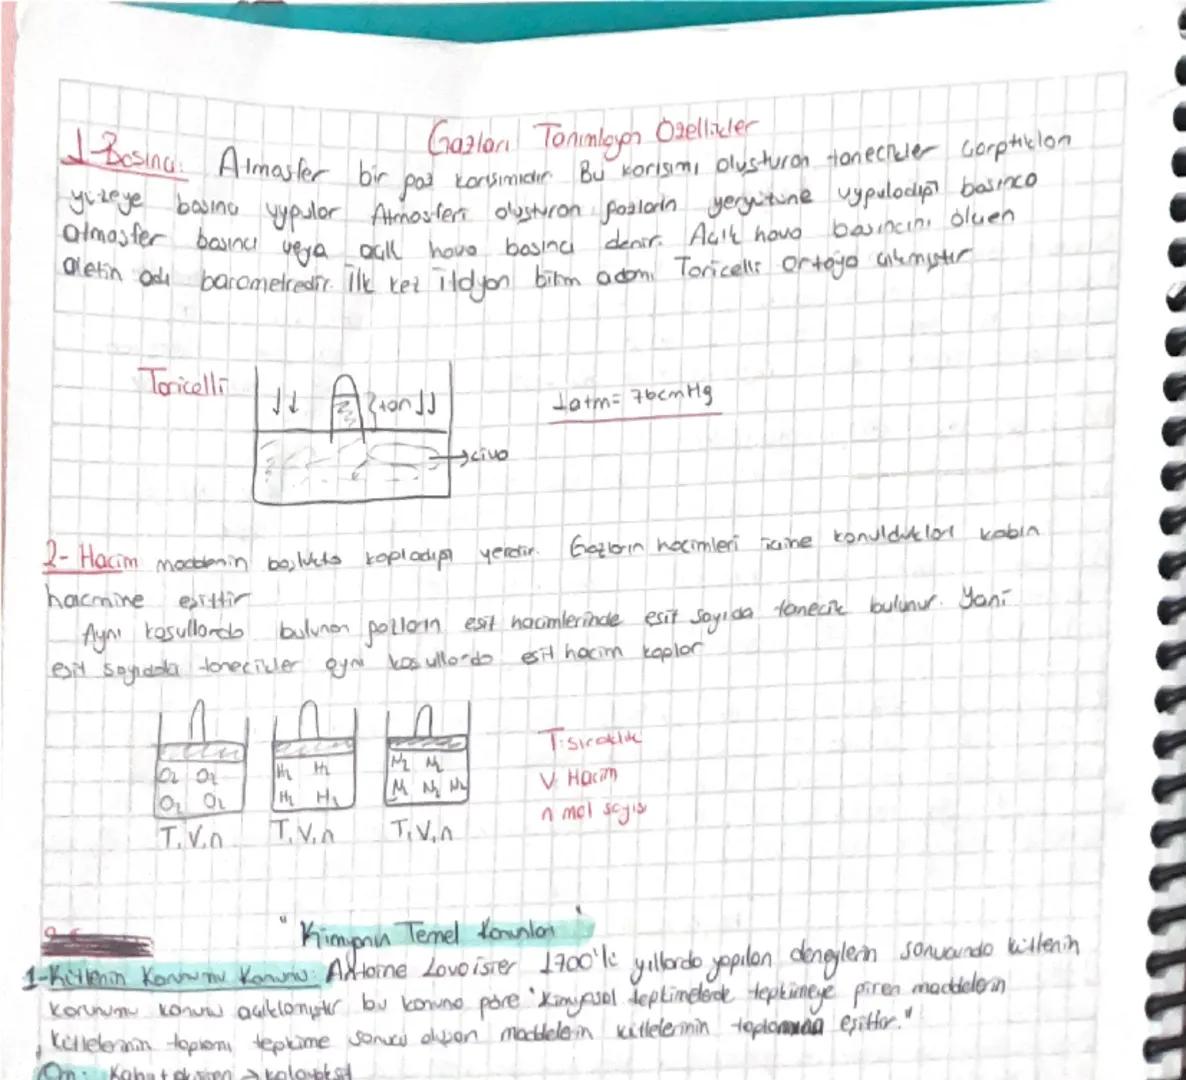 Gazları Tanımlayan Özellikler
1-Basınç: Atmosfer bir gaz karışımıdır Bu karışımı oluşturan tanecikler çarptıkları
yüzeye basınç uygular Atmosferi oluşturan gazların yeryüzüne uyguladığı basınca
atmosfer basıncı veya açık hava basıncı denir. Açık hava basıncını ölçen
aletin adı barometredir. İlk kez İtalyan bilim adamı Toricelli ortaya çıkmıştır
Toricelli
1atm= 76cmHg
→civa
2- Hacim maddenin boşlukta kapladığı yerdir. Gazların hacimleri içine konuldukları kabın
hacmine eşittir
Aynı koşullarda bulunan gazların eşit hacimlerinde eşit sayıda tanecik bulunur. Yani
eşit sayıdaki tanecikler aynı koşullarda eşit hacim kaplar
O2 O2
O2 O2
T, V, n
H2 H2
H2 H2
T, V, n
N2 N2
N N2 N2
T, V, n
T: sıcaklık
V Hacim
n mol sayısı
"Kimyanın Temel Kanunları"
1-Kütlenin Korunumu Kanunu: Antoine Lavoisier 1700'lü yıllarda yapılan deneylerin sonucunda kütlenin
korunumu kanunu açıklamıştır bu kanuna göre "Kimyasal tepkimelerde tepkimeye giren maddelerin
kütlelerinin toplamı tepkime sonucu oluşan maddelerin kütlelerinin toplamına eşittir."
Örn: Kalay + oksijen → kalayoksit